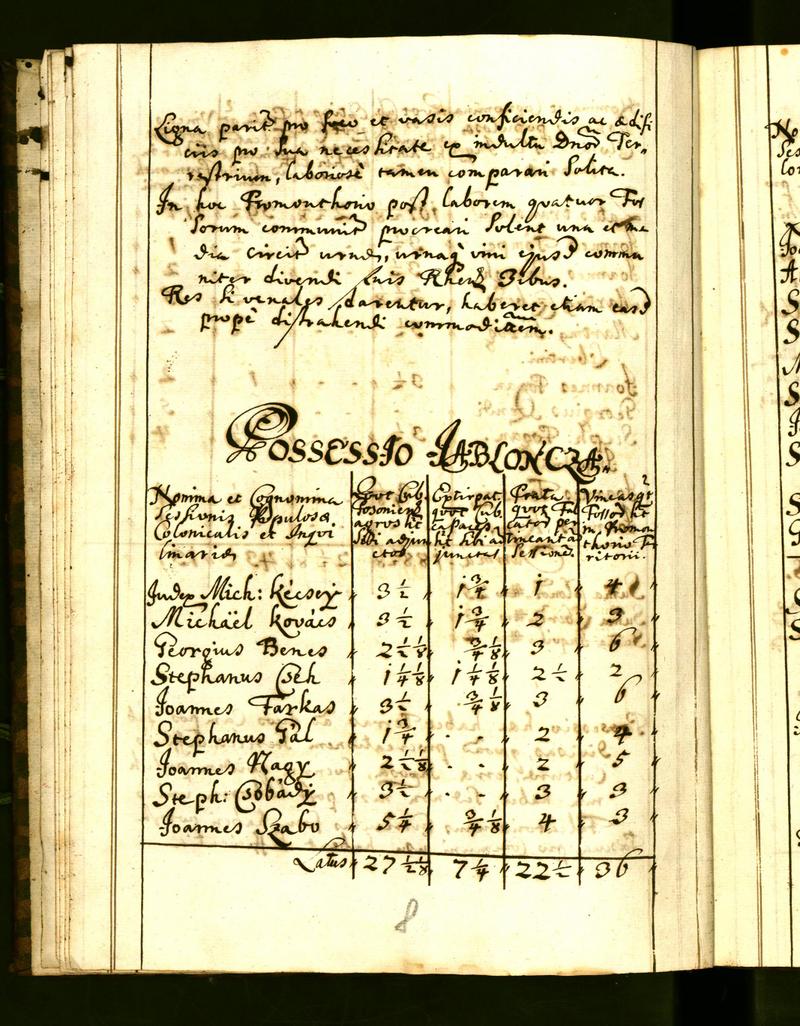 Ligna parit. pro foco et vasis conficiendis ac ædifi
ciis pro sua necessitate ex indultu Dnor. Ter-
restrium, laboriosè tamen comparari solita.
In hoc Promonthorio post laborem quatuor Fos
sorum communit. procreari solent una et me
dia circit. urnæ, urnaq vini ejusd commu
niter divendi suis Rhen. 3ibus.
Res si venales darentur, haberet etiam easd
propè distrahendi commoditem.
Possessio Jabloncza.
Nomina et Cognomina Sessionis Populosæ Colonicalis et Inqui linariæ
Quot Cub. Posoniens agros ht sibi adjun ctos
Extirpat. quot Cub. capaces ht sibi ad junctas
Prata quot Fal cator per truncant ad Sessiones
Vineas qt Fossor ht in Promon thorio Ter ritorii.
Judex Mich: Kécsey 3 1/2 1 3/4 1 4
Michäel Kovács 3 1/2 1 3/4 2 3
Georgius Benes 2 1/2 1/8 3/4 1/8 3 6
Stephanus Cseh 1 1/4 1/8 1 1/4 1/8 2 1/2 2
Joannes Farkas 3 1/2 3/4 1/8 3 6
Stephanus Pál 1 3/4 - - 2 4
Joannes Nagy 2 1/2 1/8 - - 2 5
Steph: Csobády 3 1/2 - - 3 3
Joannes Szabo 5 1/4 3/4 1/8 4 3
Latus 27 1/2 1/8 7 1/4 22 1/2 36
8